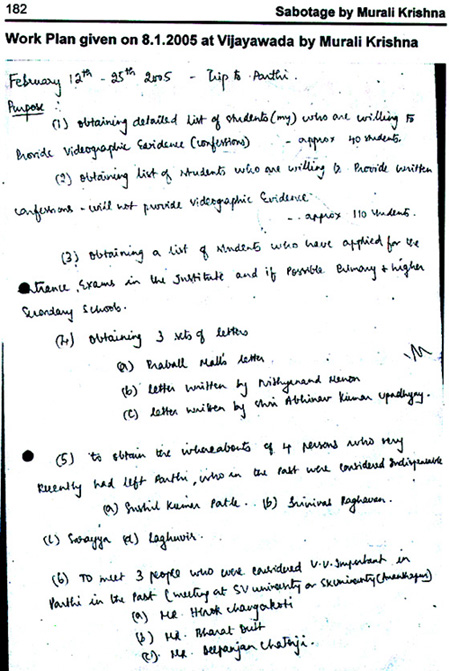 182
Sabotage by Murali Krishna
Work Plan given on 8.1.2005 at Vijayawada by Murali Krishna
February 12th - 25th 2005 - Trip to Parthi.
Purpose :
(1) obtaining detailed list of students (my) who are willing to
Provide Videographic Evidence (confessions) - approx 40 students.
(2) obtaining list of students who are willing to Provide written
confessions - will not provide Videographic Evidence
- approx 110 students.
(3) obtaining a list of students who have applied for the
Entrance Exams in the Institute and if Possible Primary + higher
Secondary Schools.
(4) obtaining 3 sets of letters
(a) Prabali Mall's letter.
(b) letter written by Nithyanand Menon
(c) letter written by Shri Abhinav Kumar Upadhyay.
(5) to obtain the whereabouts of 4 persons who very
Recently had left Parthi, who in the Past were considered Indispensable
(a) Sushil Kumar Patle. (b) Srinivas Raghavan.
(c) Sarayya (d) Raghuvir.
(6) To meet 3 people who were considered V.V. Important in
Parthi in the Past (meeting at SV university or SK university (Anantapur)
(a) Mr. Hirok
(b) Mr. Bharat Dutt
(c) Mr. Deepanjan Chatterji.